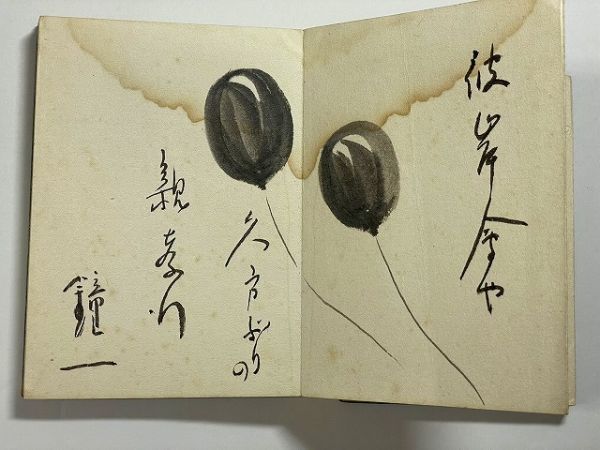 彼岸会や
久方ぶりの
親孝行
鐘一